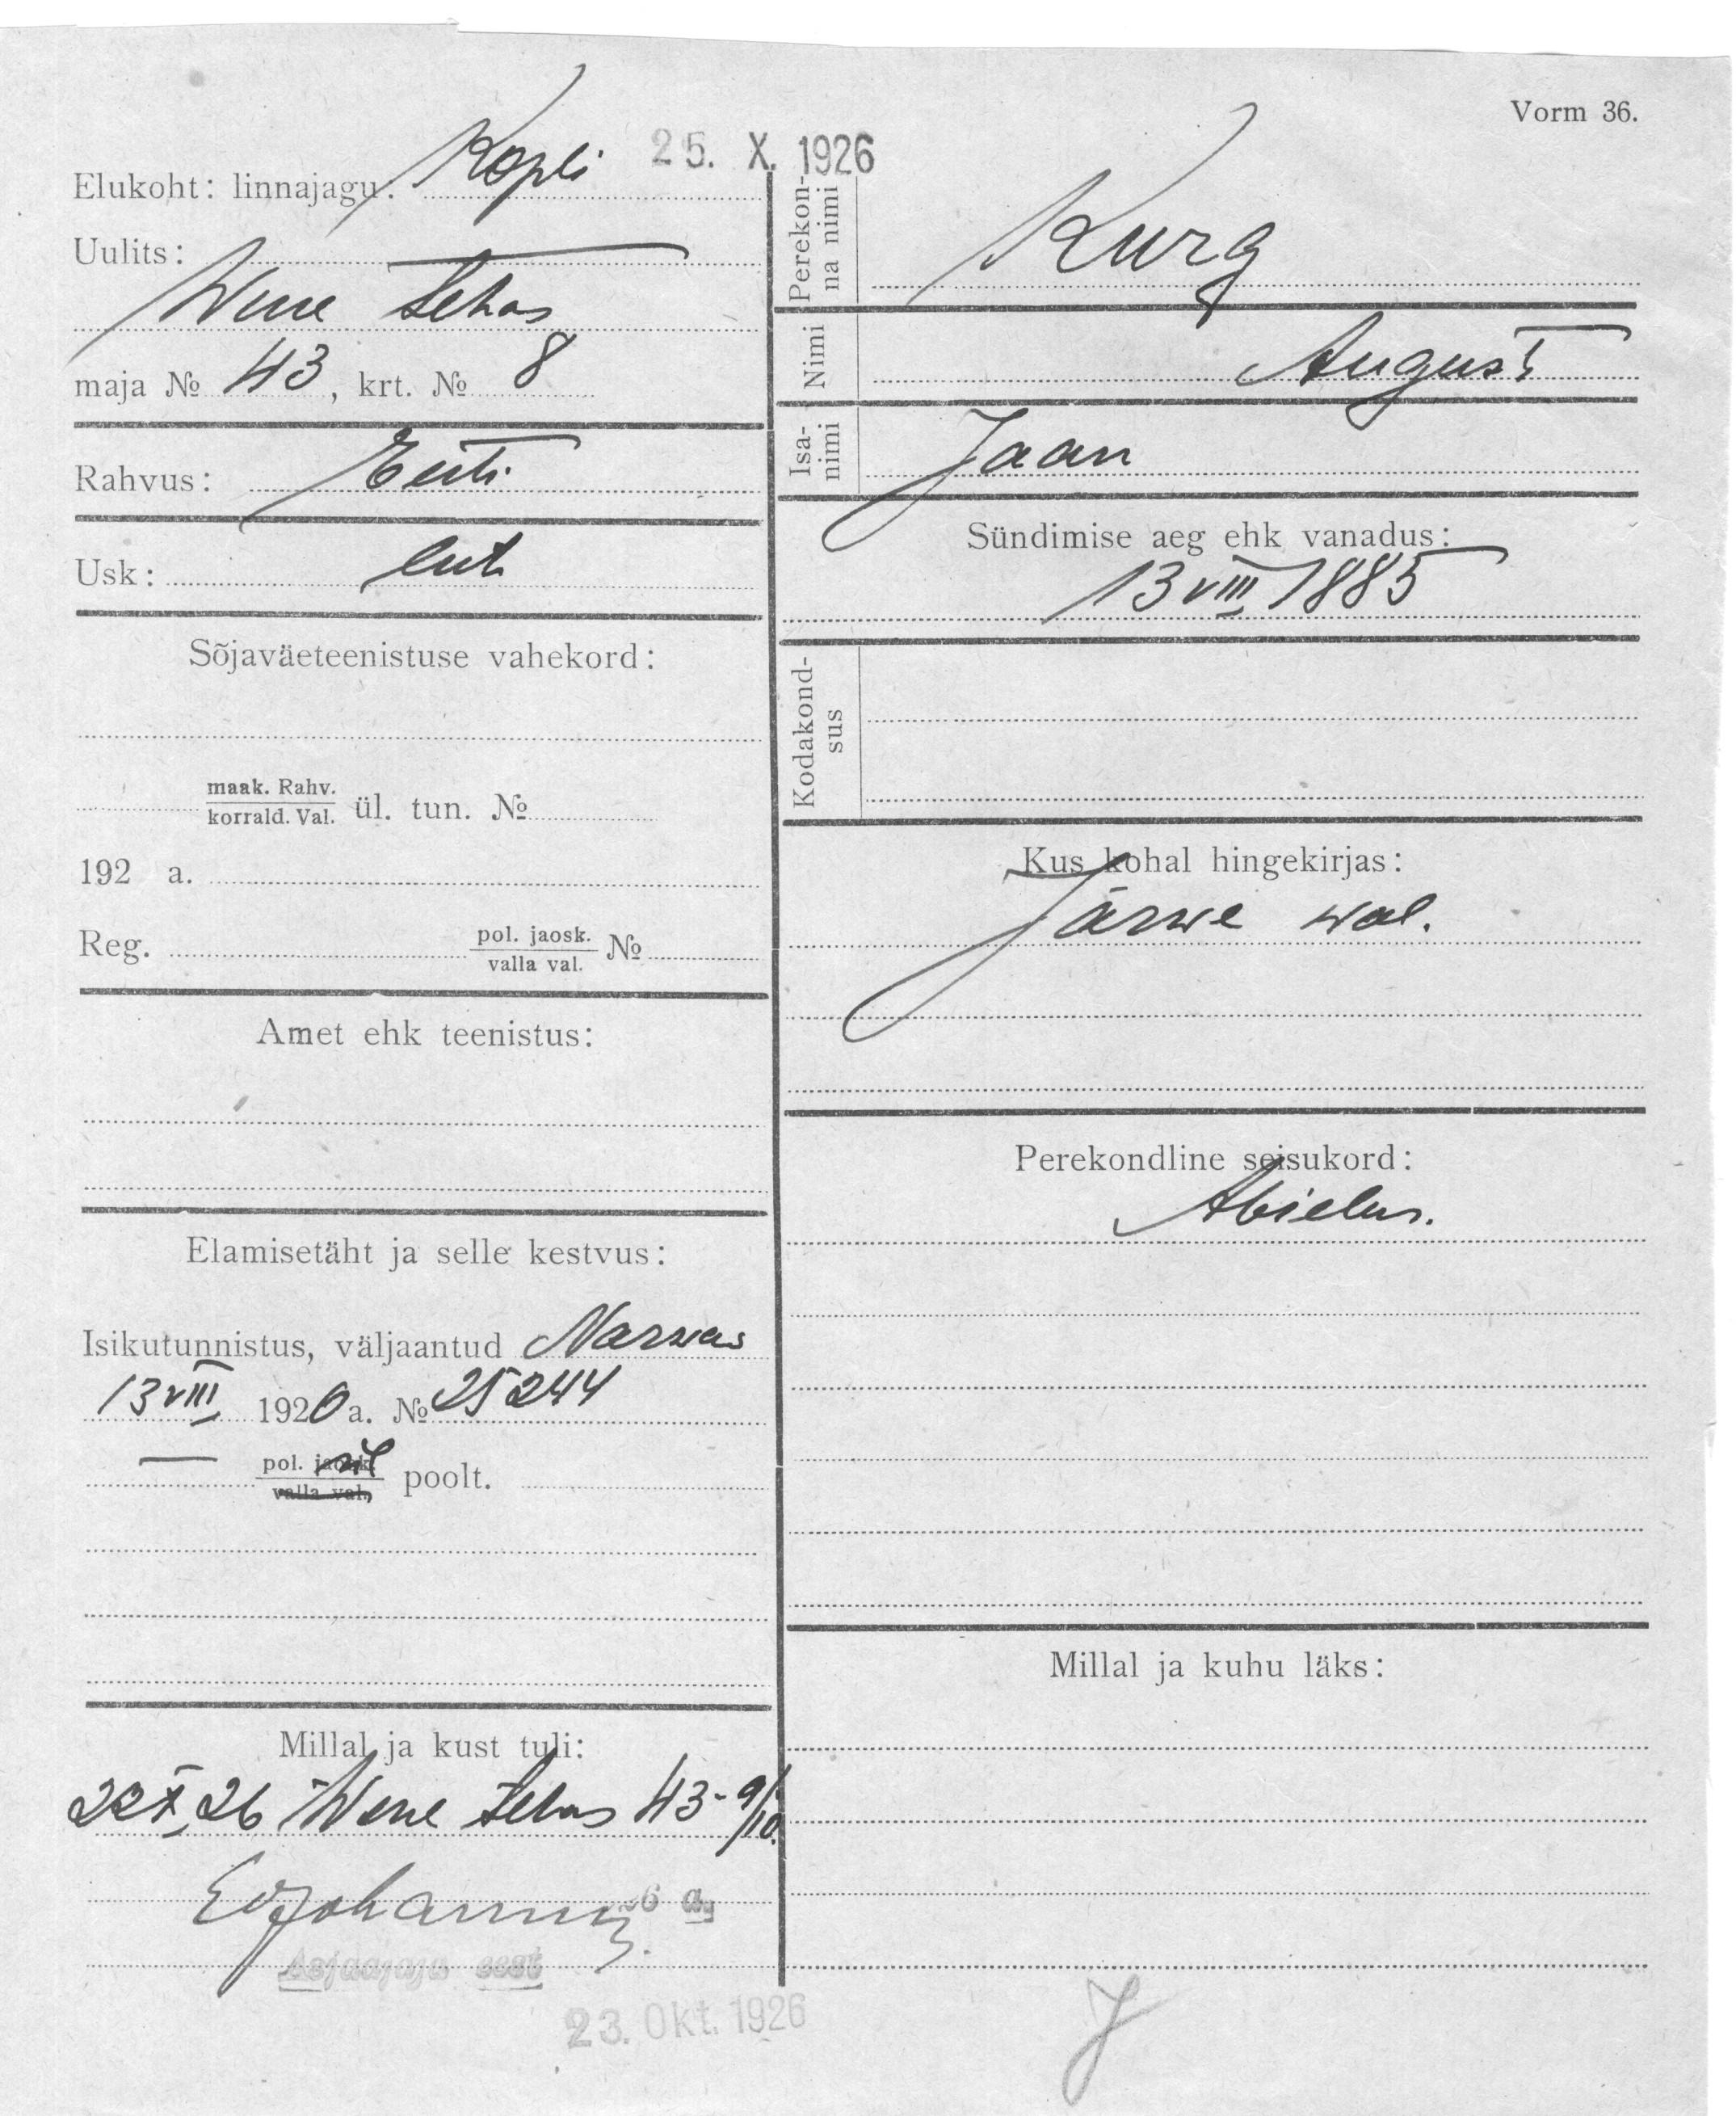 Vorm 36.
25. X. 1926
Elukoht: linnajagu: Kopli
Uulits:
Wene tehas
maja № 43, krt. № 8
Rahvus: Eesti
Usk: lut
Sõjaväeteenistuse vahekord:
maak. Rahv.
korrald. Val. ül. tun. №
192 a.
Reg. pol. jaosk.
valla val. №
Amet ehk teenistus:
Elamisetäht ja selle kestvus:
Isikutunnistus, väljaantud Narwas
13 VIII 1920 a. № 25244
— pol. jaosk.
valla val. poolt.
Millal ja kust tuli:
22 X 26 Wene tehas 43-9/10.
6 a.
Asjaajaja eest
23. Okt. 1926
Perekon-
na nimi
Kurg
Nimi
August
Isa-
nimi
Jaan
Sündimise aeg ehk vanadus:
13 VIII 1885
Kodakond-
sus
Kus kohal hingekirjas:
Järwe wal.
Perekondline seisukord:
Abielus.
Millal ja kuhu läks: